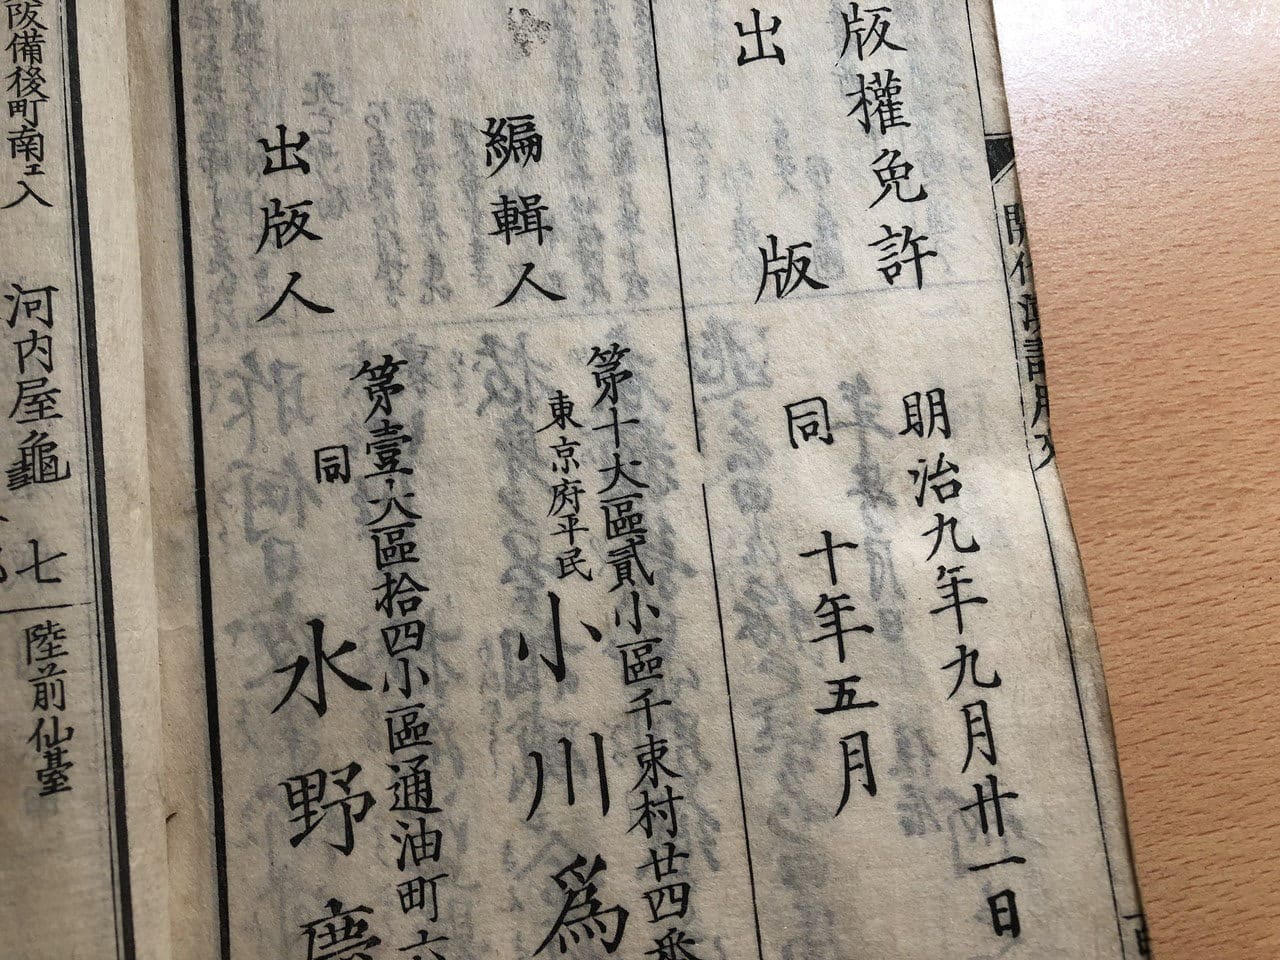 版權免許　明治九年九月廿一日
出版　同　十年五月
編輯人
第十大區貳小區千束村廿四番
東京府平民
小川爲
出版人
第壹大區拾四小區通油町六
同
水野慶
阪備後町南ェ入
河内屋龜七
陸前仙臺